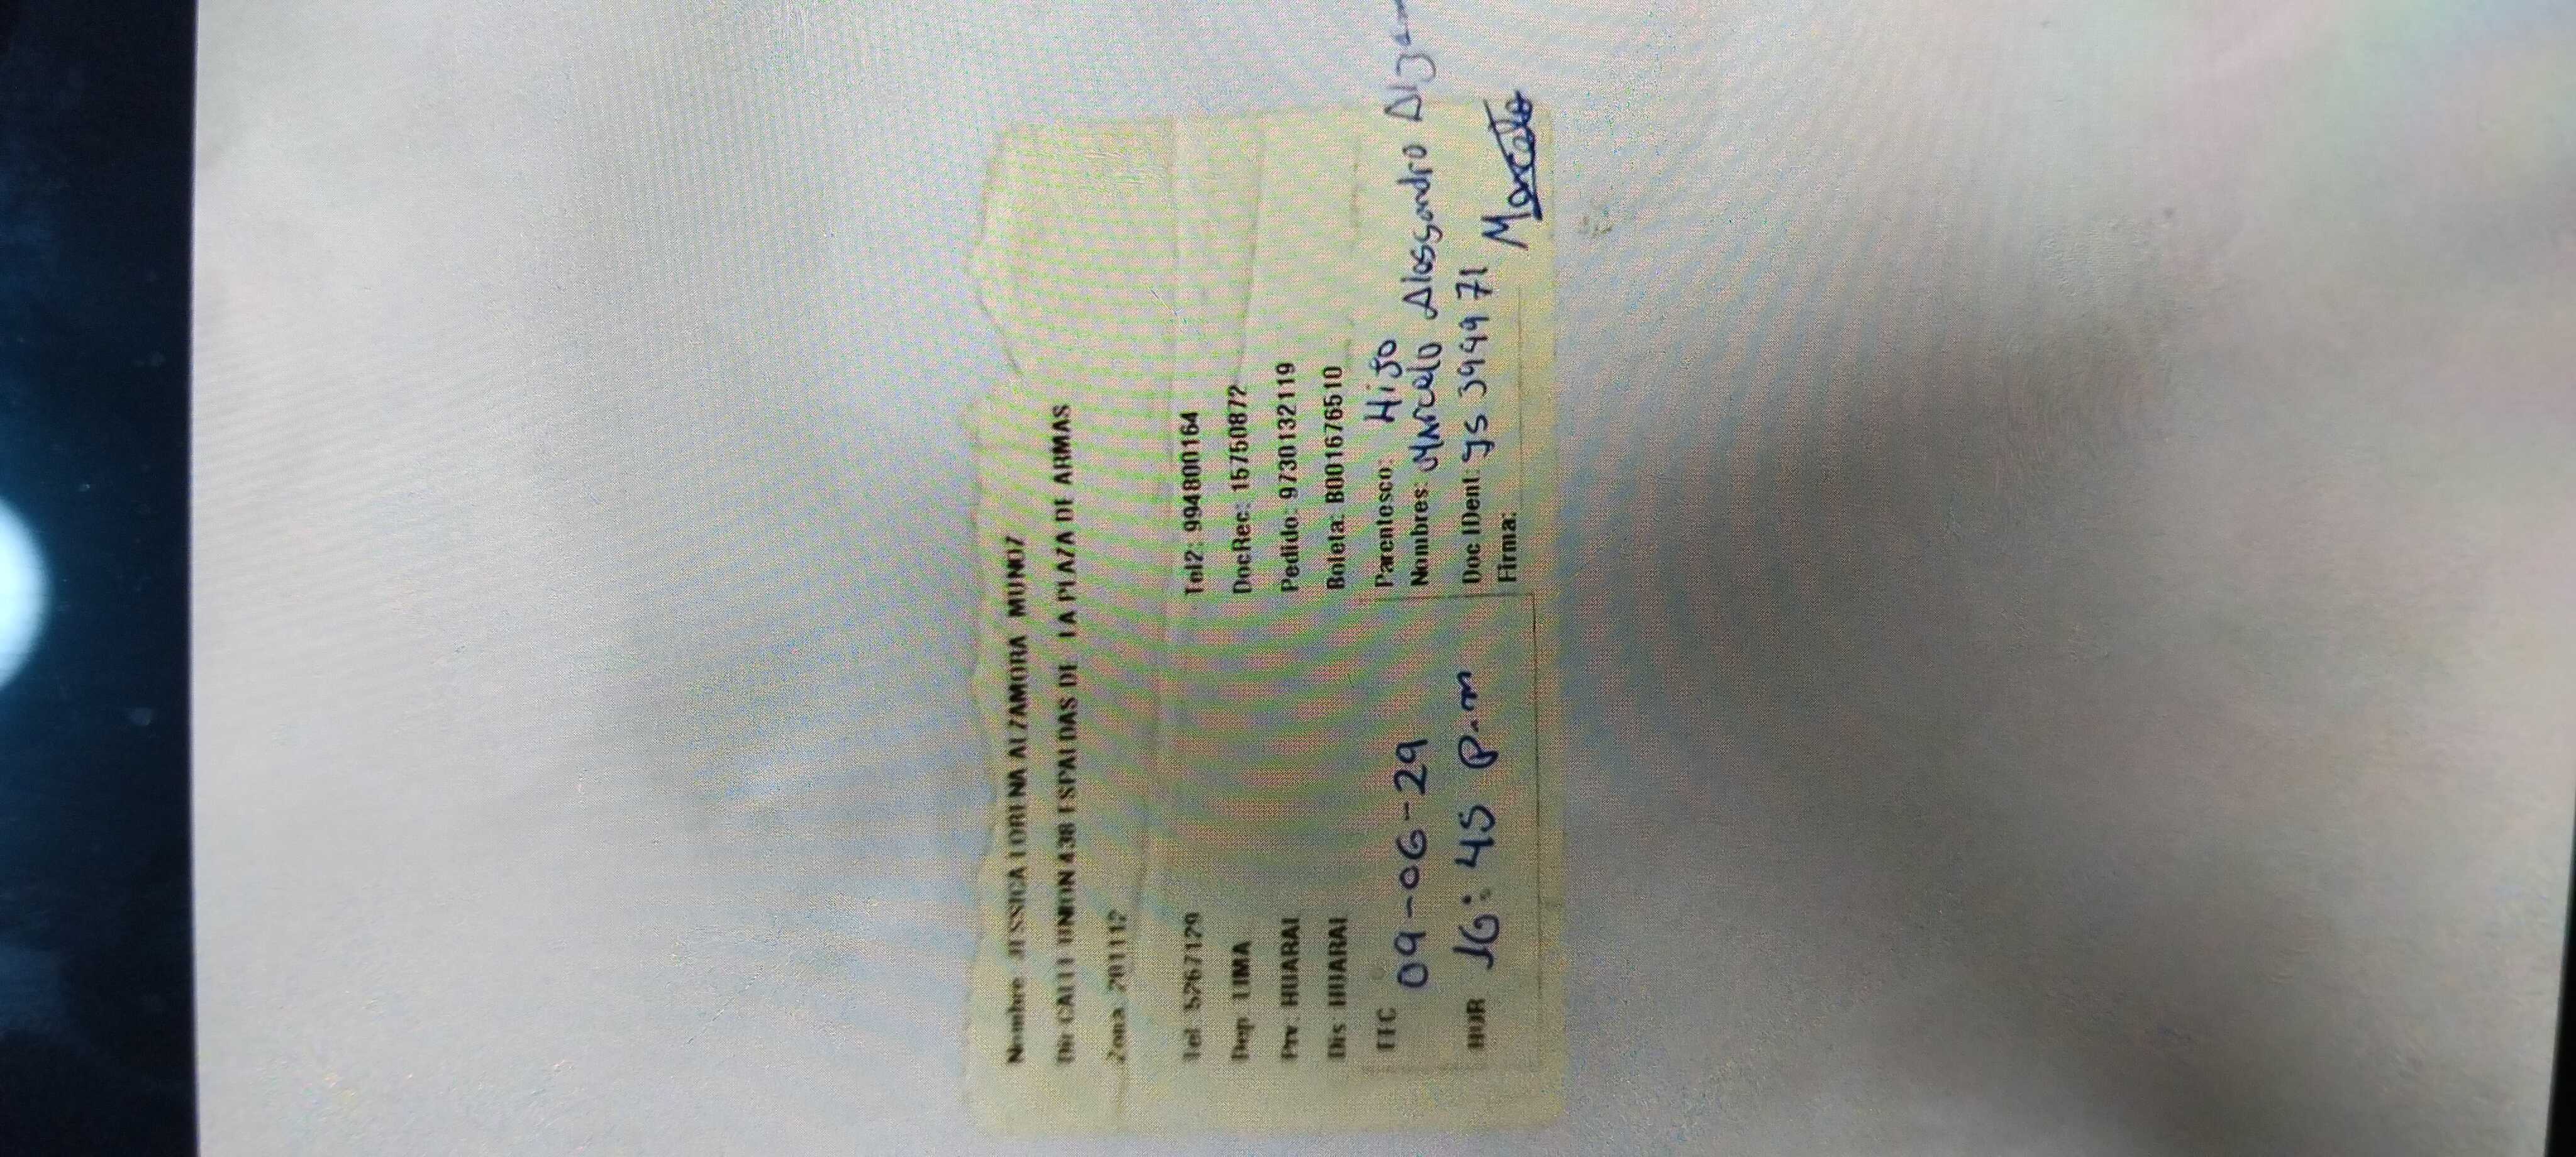 Nombre JESSICA LORENA ALZAMORA MUNOZ
Dir CALLE UNION 438 ESPALDAS DE LA PLAZA DE ARMAS
Zona 201112
Tel 5267129 Tel2: 994800164
Dep LIMA DocRec: 15750872
Prv. HUARAL Pedido: 9730132119
Dis HUARAL Boleta: B001676510
FEC 09-06-29 Parentesco: Hijo
Nombres: Marcelo Alessandro
HOR 16:45 p.m Doc IDent:
Firma: Marcelo